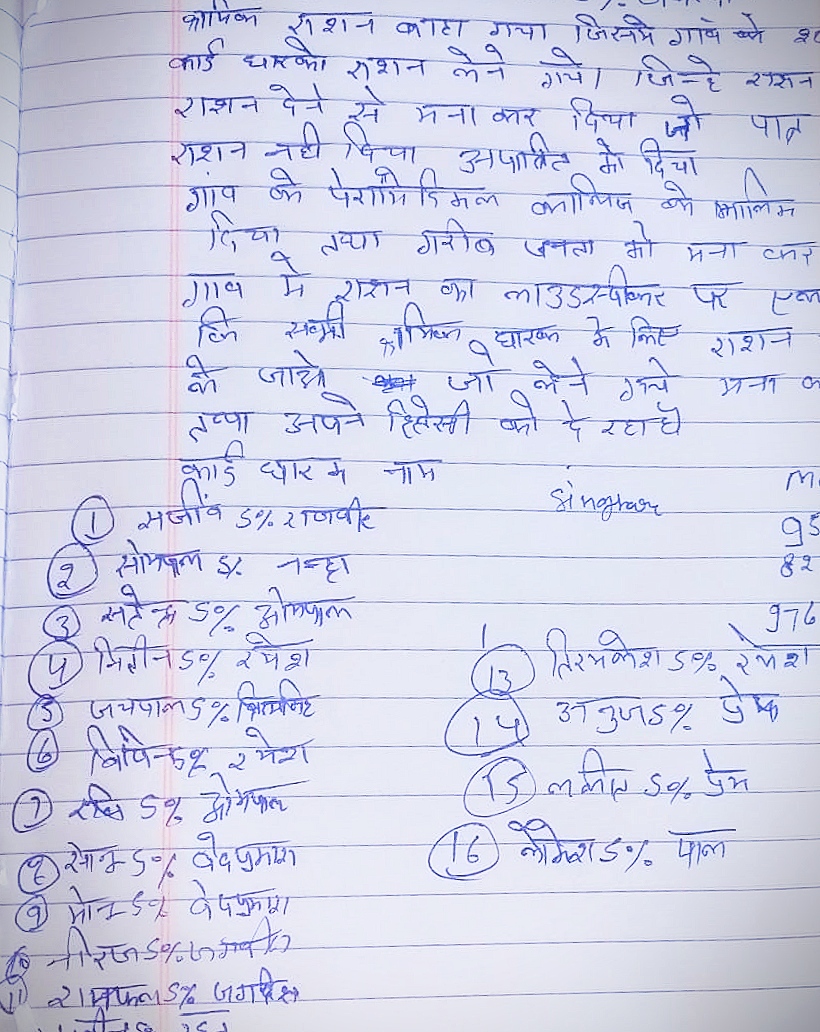 श्रमिक राशन काटा गया जिसमे गांव के 20
कार्ड धारको राशन लेने गये। जिन्हे राशन
राशन देने से मना कर दिया जो पात्र
राशन नही दिया अपात्रित को दिया
गांव के पेरामेडिकल कालिज के मालिक
दिया तथा गरीब जनता को मना कर
गांव मे राशन का लाउडस्पीकर पर
कि सभी श्रमिक धारक के लिए राशन
ले जाओ जो लेने गये मना क
तथा अपने हितेसी को दे रहा है
कार्ड धारक नाम
95
① सजीव S% राजवीर
82
② सोमपाल S% नन्हा
976
③ S% ओमपाल
④ नितीन S% रमेश
⑬ S% रमेश
⑤ जयपाल S%
⑭ अनुज S% प्रेम
⑥ विपिन S% रमेश
⑦ रवि S% ओमपाल
⑮ ललीत S% प्रेम
⑧ सोनू S% वेदप्रकाश
⑯ S% पाल
⑨ मोनू S% वेदप्रकाश
10 नीरज S%
11 रामफल S% जगदीश